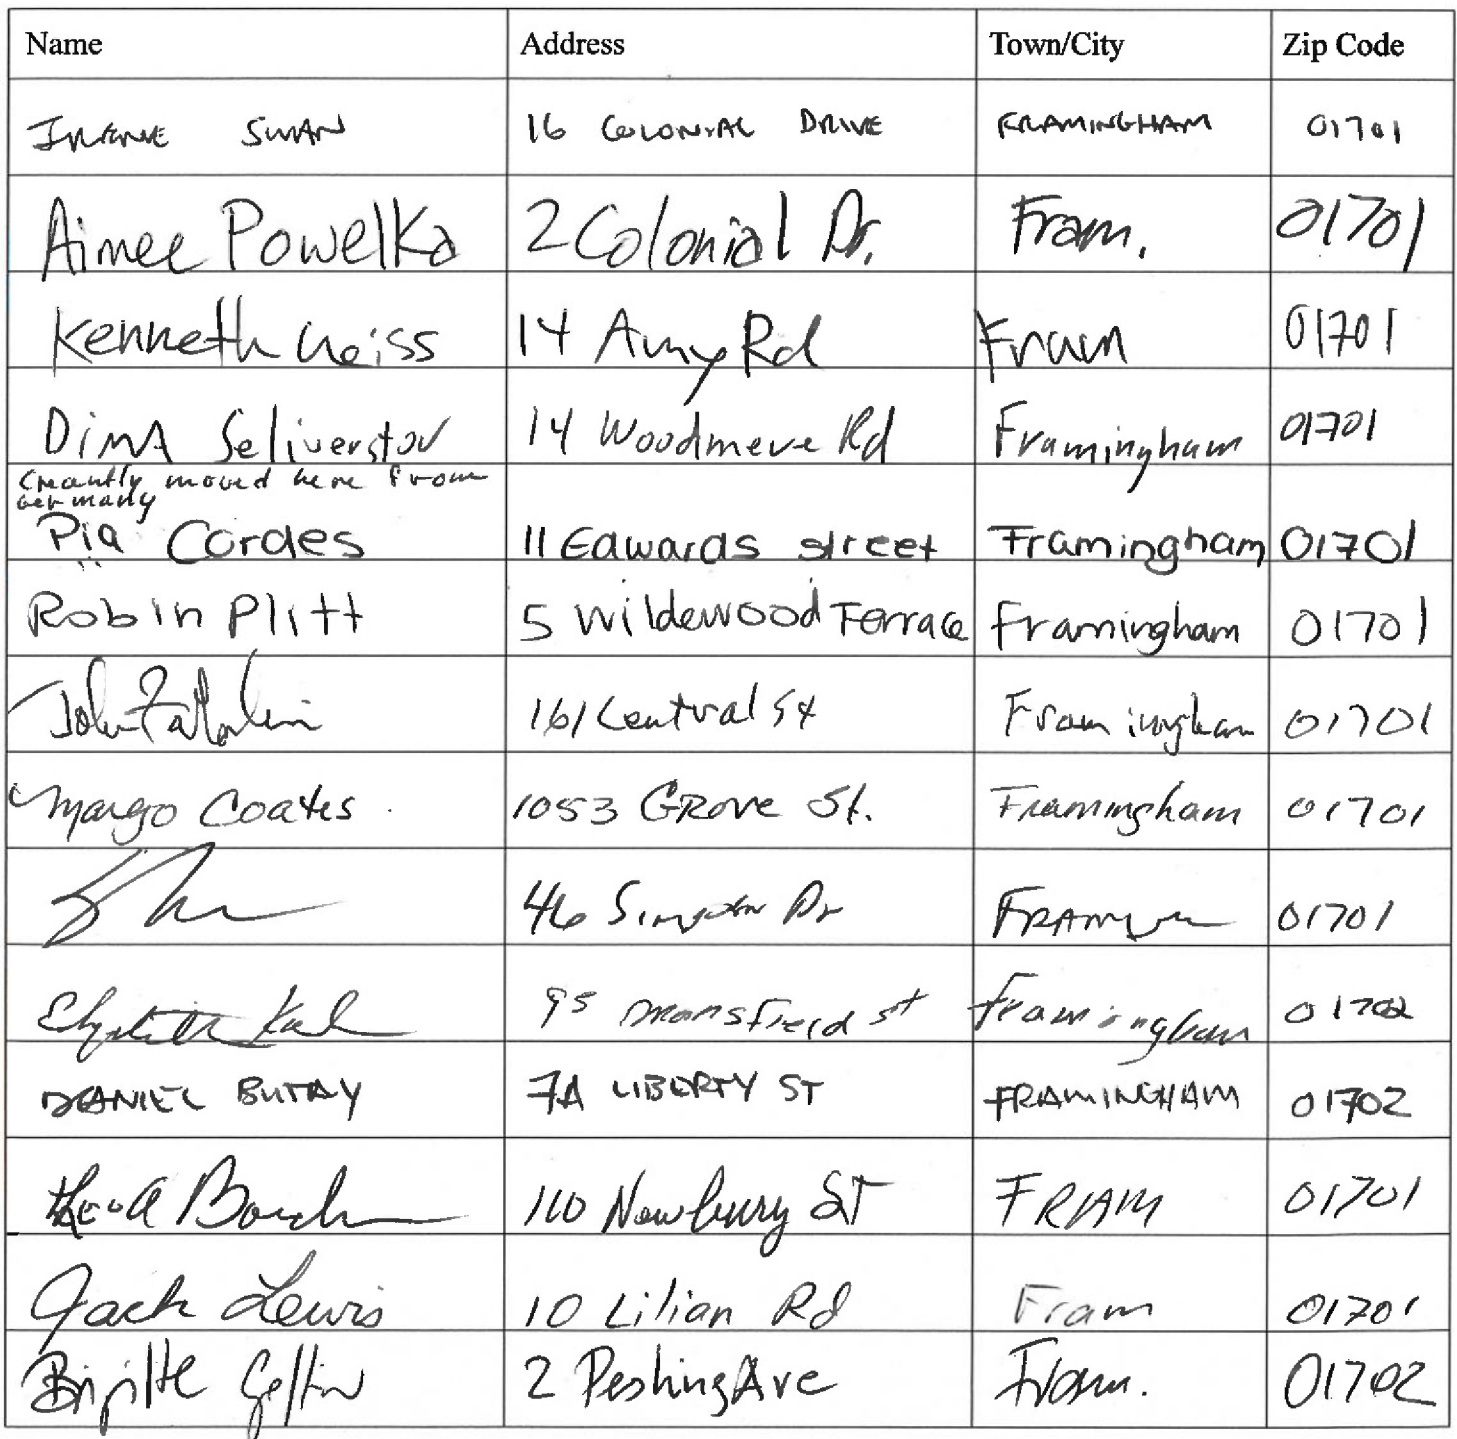 Name Address Town/City Zip Code
IRENE SWAN 16 COLONIAL DRIVE FRAMINGHAM 01701
Aimee Powelka 2 Colonial Dr. Fram. 01701
Kenneth Weiss 14 Amy Rd Fram 01701
Dima Seliverstov 14 Woodmere Rd Framingham 01701
moved here from
Germany
Pia Cordes 11 Edwards street Framingham 01701
Robin Plitt 5 Wildewood Terrace Framingham 01701
John 161 Central St Framingham 01701
Margo Coates 1053 GROVE St. Framingham 01701
46 Dr 01701
Elizabeth 95 Mansfield st framingham 01702
DANIEL BUTRY 7A LIBERTY ST FRAMINGHAM 01702
110 Newbury ST FRAM 01701
Jack Lewis 10 Lilian Rd Fram 01701
Brigitte 2 Pershing Ave Fram. 01702